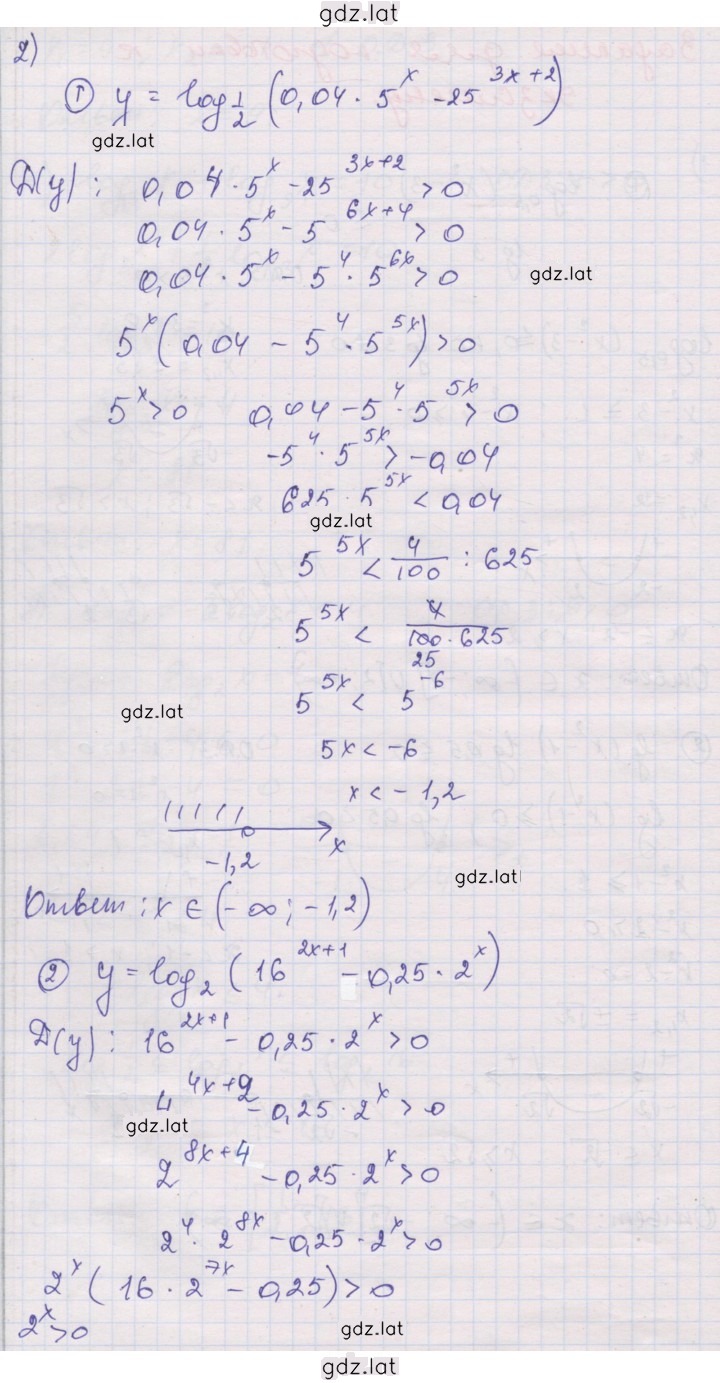 gdz.lat
2)
① y = log_{1/2} (0,04 · 5^x - 25^{3x+2})
gdz.lat
D(y): 0,04 · 5^x - 25^{3x+2} > 0
0,04 · 5^x - 5^{6x+4} > 0
0,04 · 5^x - 5^4 · 5^{6x} > 0
gdz.lat
5^x (0,04 - 5^4 · 5^{5x}) > 0
5^x > 0 0,04 - 5^4 · 5^{5x} > 0
-5^4 · 5^{5x} > -0,04
625 · 5^{5x} < 0,04
gdz.lat
5^{5x} < 4/100 : 625
5^{5x} < 4/(100 · 625)
25
5^{5x} < 5^{-6}
gdz.lat
5x < -6
x < -1,2
x
-1,2
gdz.lat
Ответ: x ∈ (-∞; -1,2)
② y = log_2 (16^{2x+1} - 0,25 · 2^x)
D(y): 16^{2x+1} - 0,25 · 2^x > 0
4^{4x+2} - 0,25 · 2^x > 0
gdz.lat
2^{8x+4} - 0,25 · 2^x > 0
2^4 · 2^{8x} - 0,25 · 2^x > 0
2^x (16 · 2^{7x} - 0,25) > 0
2^x > 0
gdz.lat
gdz.lat